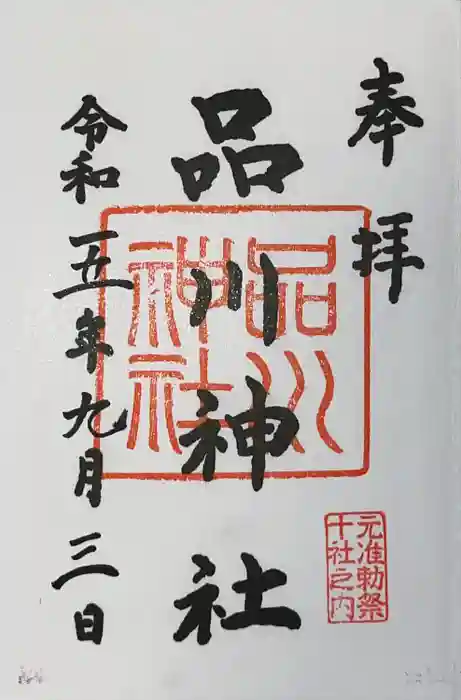 奉拝
品川神社
令和五年九月三日
品川
神社
元准勅祭
十社之内